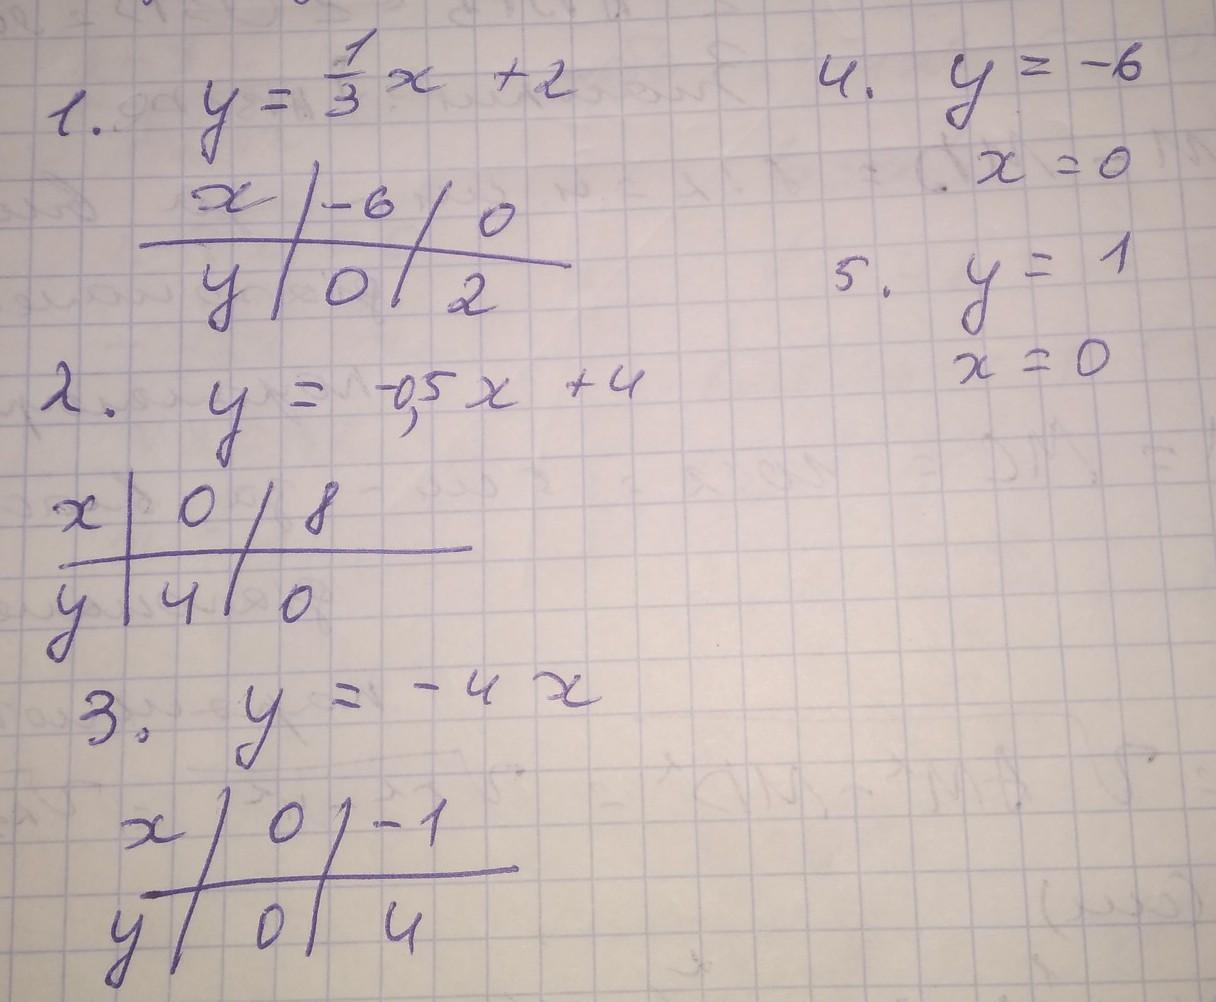 1. y = 1/3 x + 2
x | -6 | 0
y | 0 | 2
2. y = -0,5x + 4
x | 0 | 8
y | 4 | 0
3. y = -4x
x | 0 | -1
y | 0 | 4
4. y = -6
x = 0
5. y = 1
x = 0